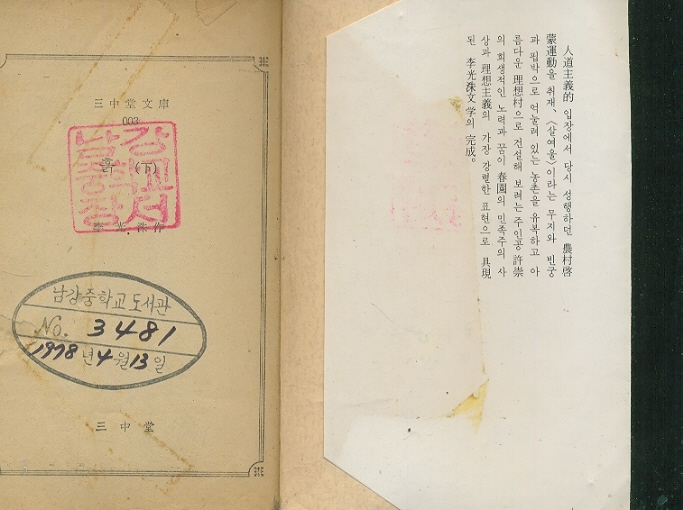 三中堂文庫
003
흙 (下)
李光洙作
남강중학교도서관
No. 3481
1978년 4월 13일
三中堂
人道主義的 입장에서 당시 성행하던 農村啓
蒙運動을 취재、〈살여울〉이라는 무지와 빈궁
과 핍박으로 억눌려 있는 농촌을 유복하고 아
름다운 理想村으로 건설해 보려는 주인공 許崇
의 희생적인 노력과 꿈이 春園의 민족주의 사
상과 理想主義의 가장 강렬한 표현으로 具現
된 李光洙文学의 完成。